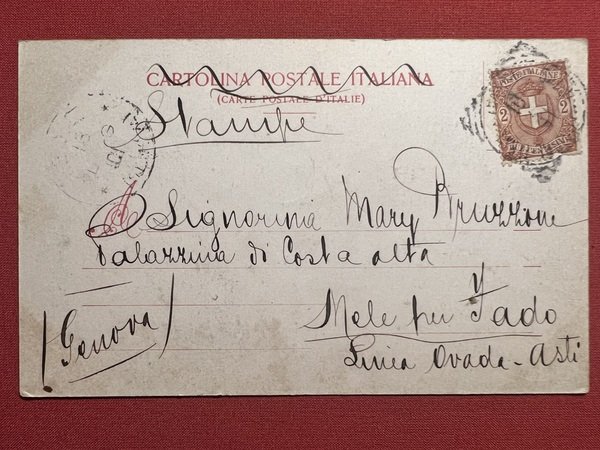 CARTOLINA POSTALE ITALIANA
(CARTE POSTALE D'ITALIE)
Stampe
POSTE ITALIANE
2 2
CENTESIMI
A Signorina Mary Bruzzone
Palazzina di Costa alta
Mele per Fado
(Genova)
Linea Ovada-Asti